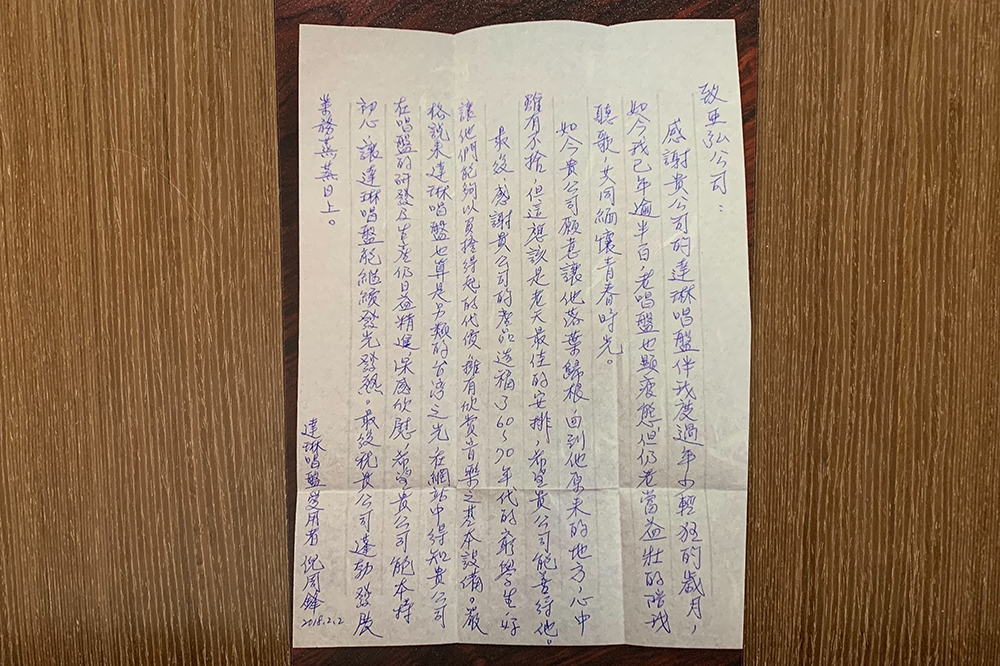 致亞弘公司：
感謝貴公司的達琳唱盤伴我度過年少輕狂的歲月，
如今我已年逾半百，老唱盤也顯疲態但仍老當益壯的陪我
聽歌，共同緬懷青春時光。
如今貴公司願意讓他落葉歸根，回到他原來的地方，心中
雖有不捨，但這應該是老天最佳的安排，希望貴公司能善待他。
最後感謝貴公司的產品造福了60~70年代的窮學生，好
讓他們能夠以負擔得起的代價，擁有欣賞音樂之基本設備。嚴
格說來達琳唱盤也算是另類的台灣之光，在網站中得知貴公司
在唱盤的研發及生產仍日益精進，深感欣慰，希望貴公司能本持
初心，讓達琳唱盤能繼續發光發熱。最後祝貴公司蓬勃發展
業務蒸蒸日上。
達琳唱盤愛用者 倪周鋒
2018.2.2